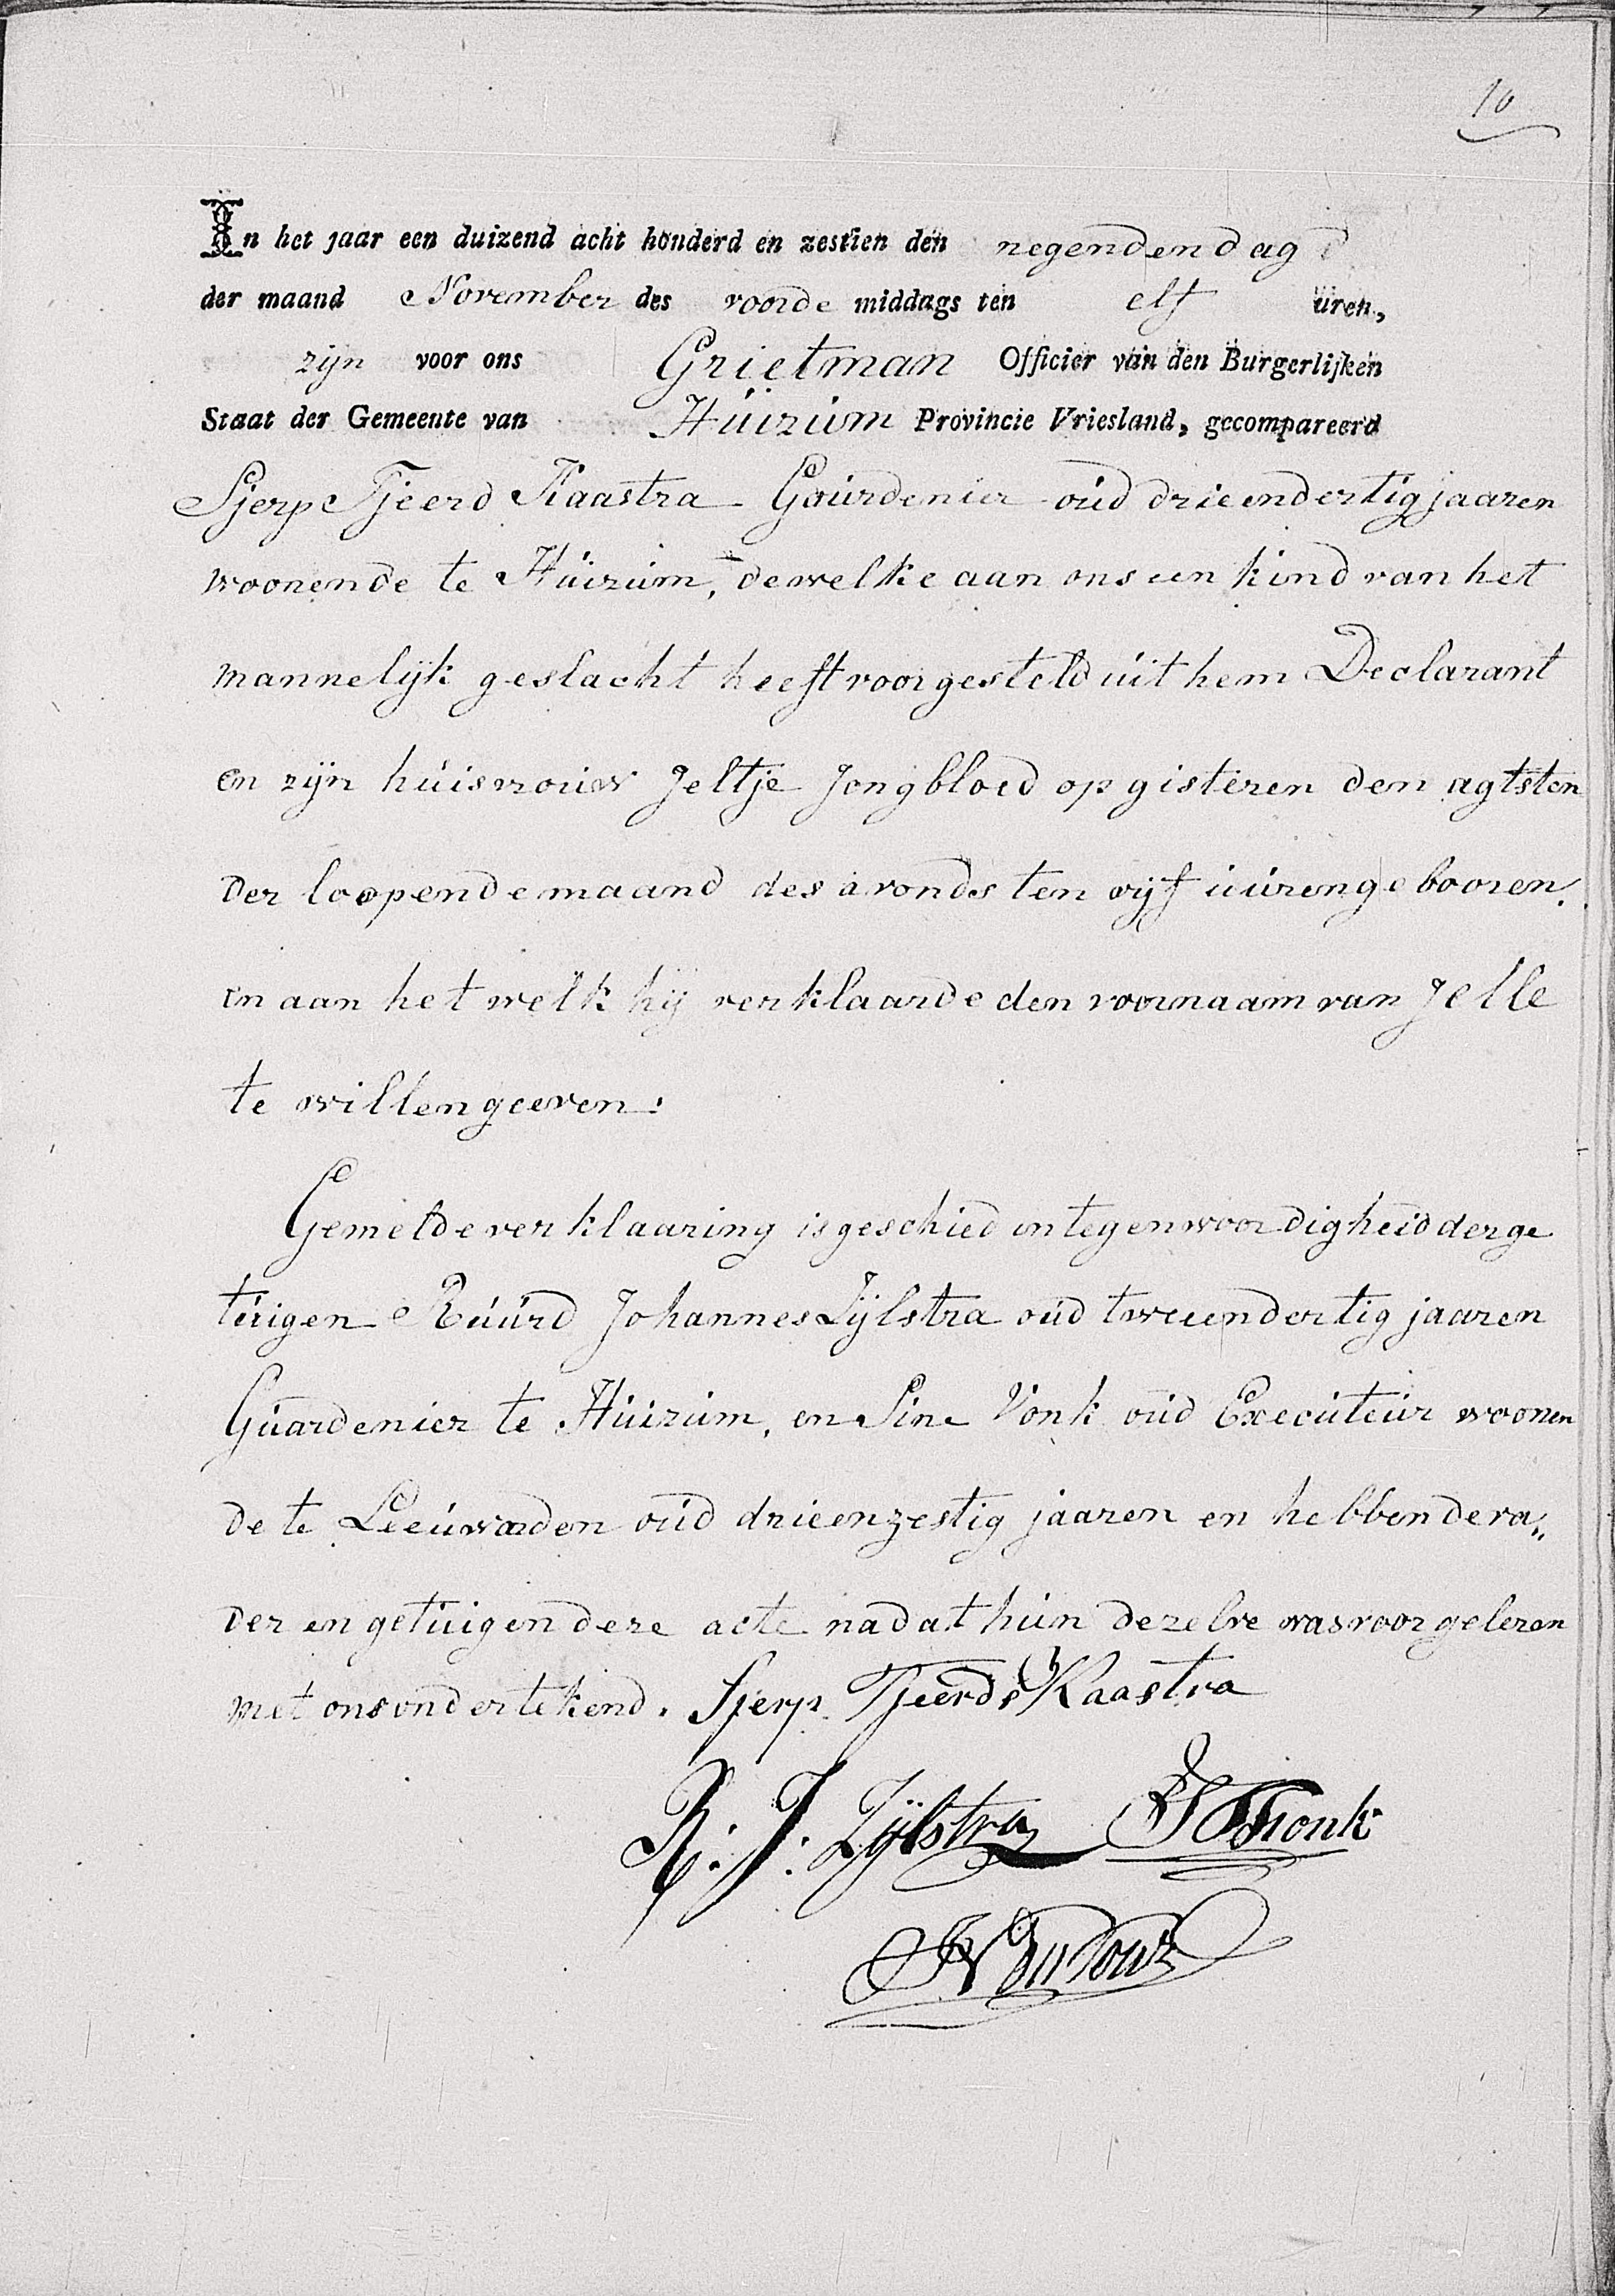 10
In het jaar een duizend acht honderd en zestien den negenden dag
der maand November des voorde middags ten elf uren,
zijn voor ons Grietman Officier van den Burgerlijken
Staat der Gemeente van Húizúm Provincie Vriesland, gecompareerd
Sjerp Tjeerd Kaastra Goúrdenier oúd drieendertig jaaren
woonende te Húizúm, dewelke aan ons een kind van het
mannelijk geslacht heeft voorgesteld úit hem Declarant
en zijn húisvroúw Jeltje Jongbloed op gisteren den agtsten
der loopende maand des avonds ten vijf úúren gebooren.
en aan het welk hij verklaarde den voornaam van Jelle
te willen geeven.
Gemelde verklaaring is geschied in tegenwoordigheid der ge
túigen Rúúrd Johannes Zijlstra oúd tweeendertig jaaren
Gúardenier te Húizúm, en Sine Vonk oúd Executeúr woonen
de te Leeúwarden oúd drieenzestig jaaren en hebben de va„
der en getúigen deze acte na dat hún dezelve was voorgelezen
met ons ondertekend. Sjerp Tjeerds Kaastra
R: J: Zijlstra Vonk